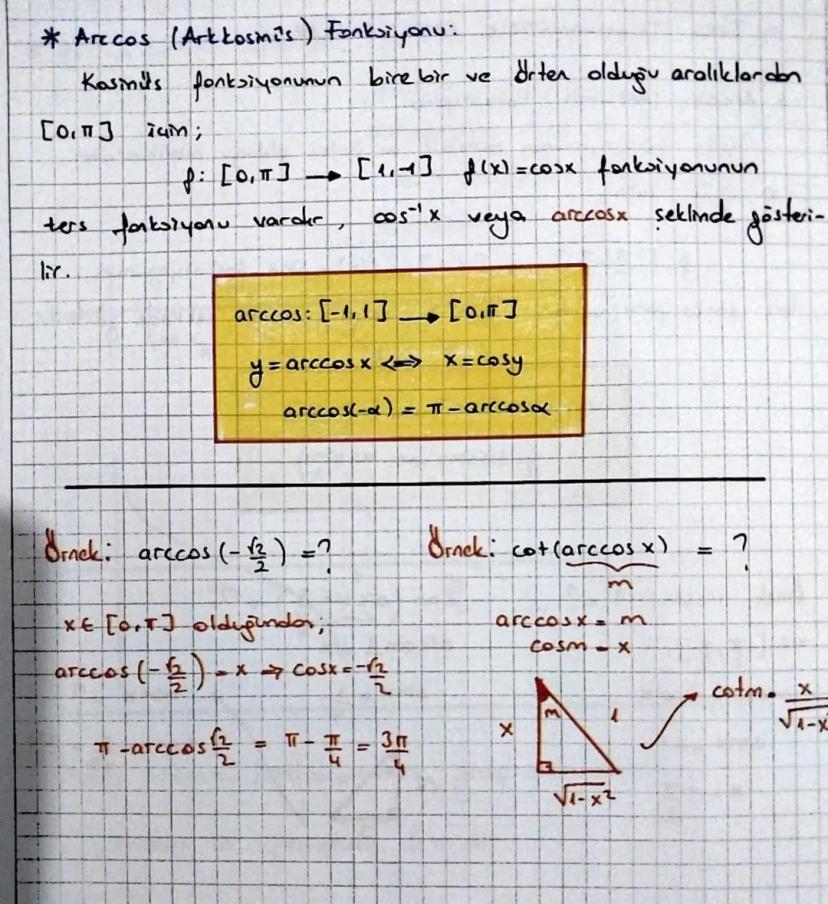 * Arccos (Arkkosinüs) Fonksiyonu:
Kosinüs fonksiyonunun birebir ve örten olduğu aralıklardan
[0,π] için;
f: [0,π] → [1,-1] f(x)=cosx fonksiyonunun
ters fonksiyonu vardır, cos⁻¹x veya arccosx şeklinde gösteri-
lir.
arccos: [-1,1] → [0,π]
y=arccosx <=> x=cosy
arccos(-α) = π-arccosα
Örnek: arccos(-√2/2) =?
x∈ [0,π] olduğundan;
arccos(-√2/2) = x → cosx = -√2/2
π-arccos√2/2 = π - π/4 = 3π/4
Örnek: cot(arccos x) = ?
m
arccosx = m
cosm = x
x
m
1
√1-x²
cotm = x/√1-x